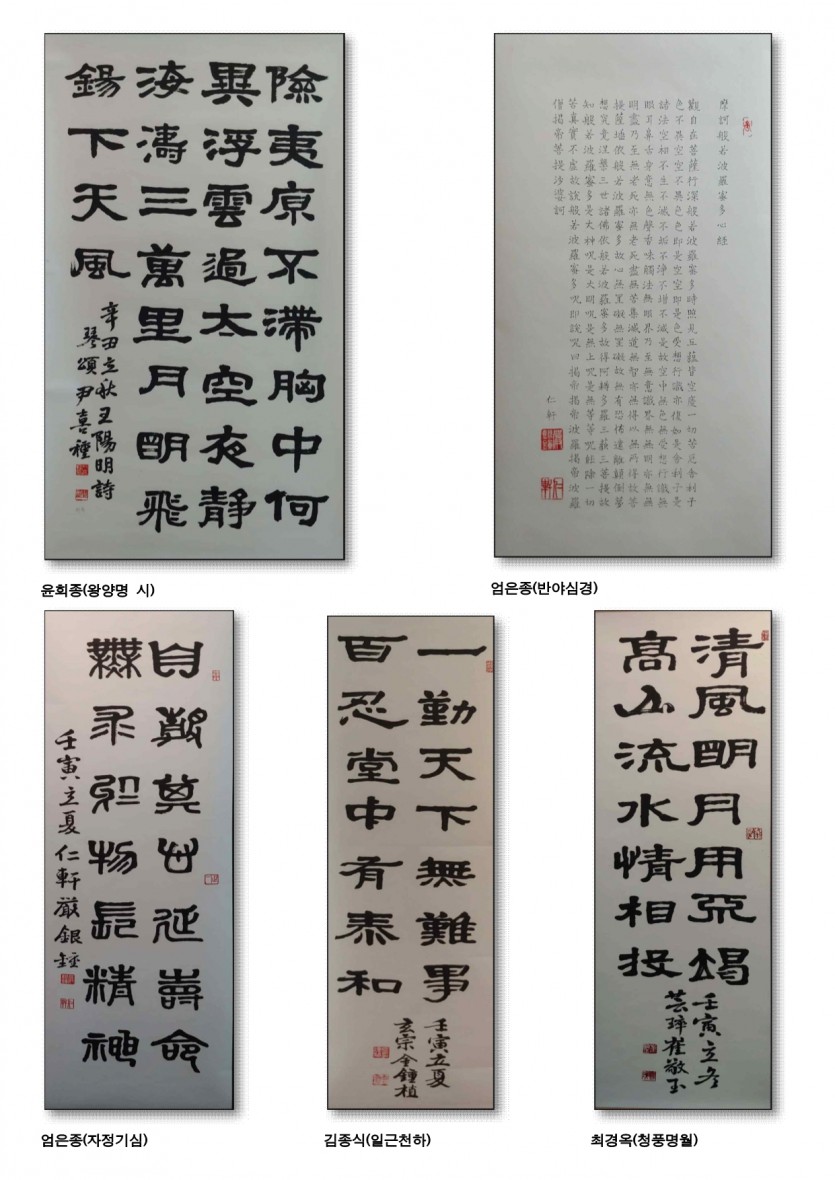 險夷原不滯胸中何
異浮雲過太空夜靜
海濤三萬里月明飛
錫下天風
辛丑立秋王陽明詩
琴頌尹喜種
윤희종(왕양명 시)
摩訶般若波羅蜜多心經
觀自在菩薩行深般若波羅蜜多時照見五蘊皆空度一切苦厄舍利子
色不異空空不異色色即是空空即是色受想行識亦復如是舍利子是
諸法空相不生不滅不垢不淨不增不減是故空中無色無受想行識無
眼耳鼻舌身意無色聲香味觸法無眼界乃至無意識界無無明亦無無
明盡乃至無老死亦無老死盡無苦集滅道無智亦無得以無所得故菩
提薩埵依般若波羅蜜多故心無罣礙無罣礙故無有恐怖遠離顛倒夢
想究竟涅槃三世諸佛依般若波羅蜜多故得阿耨多羅三藐三菩提故
知般若波羅蜜多是大神呪是大明呪是無上呪是無等等呪能除一切
苦真實不虛故說般若波羅蜜多呪即說呪曰揭帝揭帝波羅揭帝波羅
僧揭帝菩提沙婆訶
仁軒
엄은종(반야심경)
自靜其心延壽命
無求於物長精神
壬寅立夏 仁軒 嚴銀鍾
엄은종(자정기심)
一勤天下無難事
百忍堂中有泰和
壬寅立夏
玄宗金鍾植
김종식(일근천하)
清風明月用不竭
高山流水情相投
壬寅立冬
芸琫崔敬玉
최경옥(청풍명월)